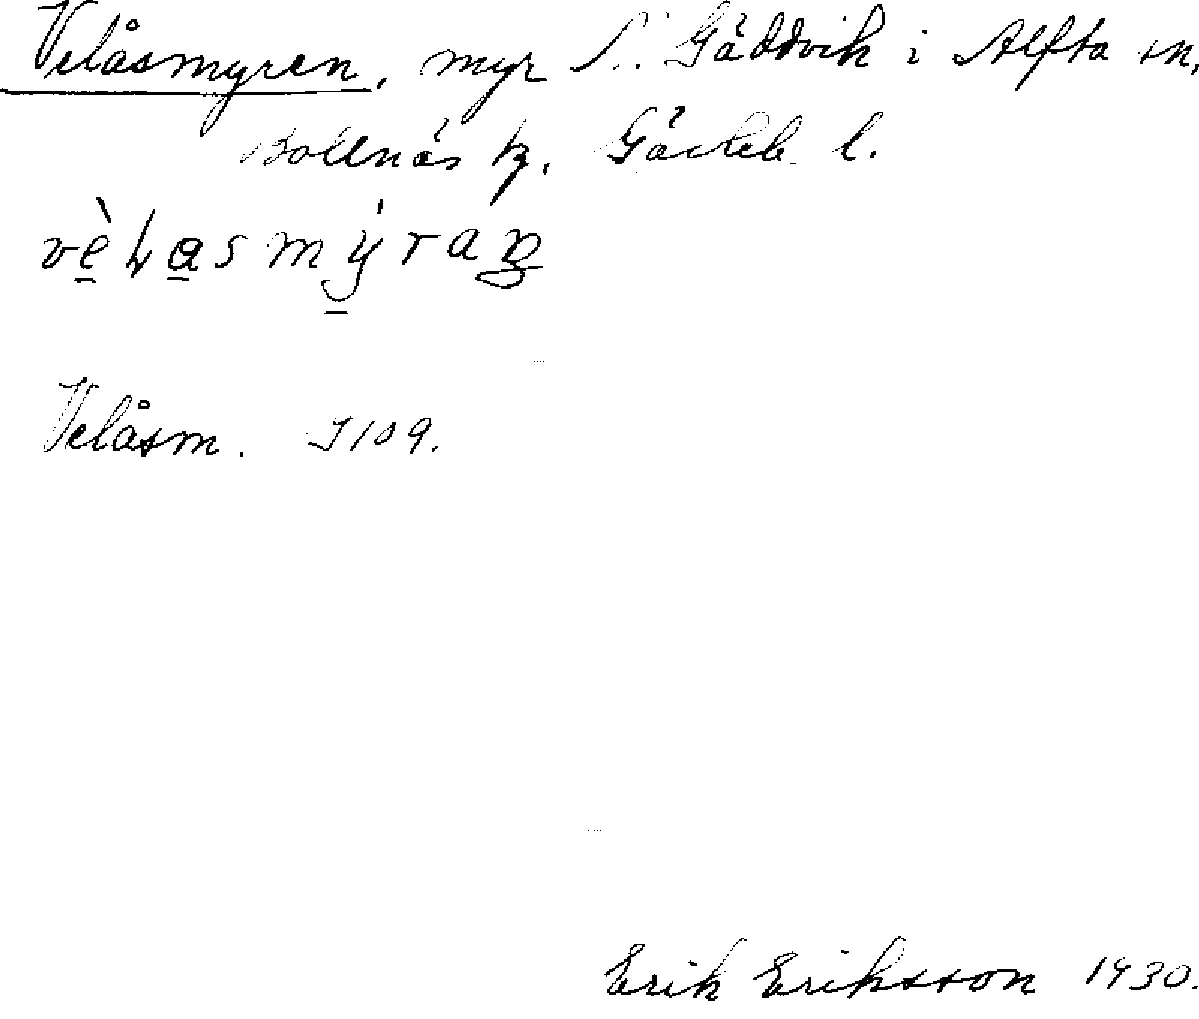 Velåsmyren, myr N. Gäddvik i Alfta sn,
Bollnäs tg. Gävleb. l.
Velåsm. J109.
Erik Eriksson 1930.